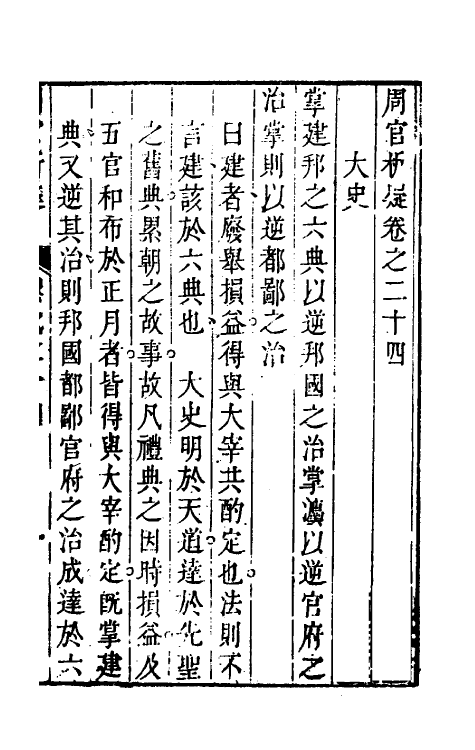 周官析疑卷之二十四
大史
掌建邦之六典以逆邦國之治掌灋以逆官府之
治掌則以逆都鄙之治
曰建者廢舉損益得與大宰共酌定也法則不
言建該於六典也 大史明於天道達於先聖
之舊典累朝之故事故凡禮典之因時損益及
五官和布於正月者皆得與大宰酌定旣掌建
典又逆其治則邦國都鄙官府之治成達於六